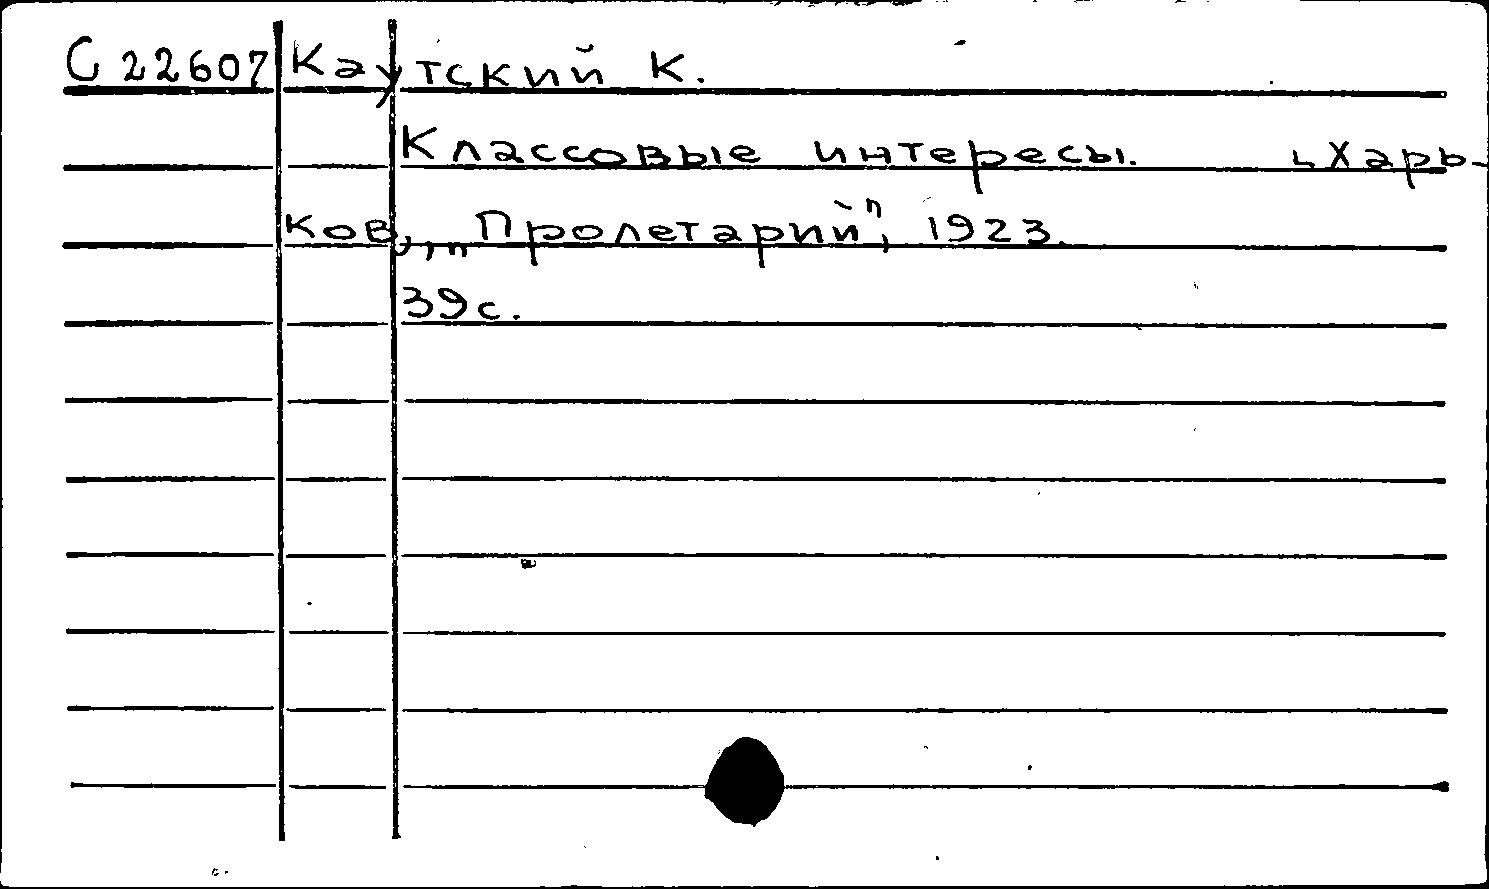 С 22607 Каутский К.
Классовые интересы. Харь-
ков, „Пролетарий", 1923.
39с.